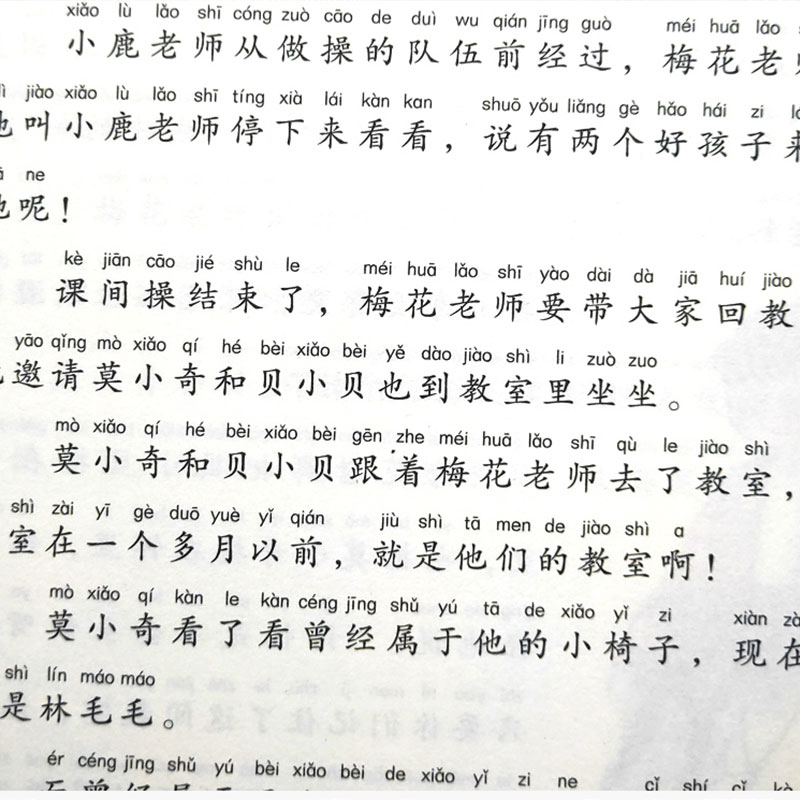 xiǎo lù lǎo shī cóng zuò cāo de duì wu qián jīng guò méi huā lǎo
小鹿老师从做操的队伍前经过，梅花老师
jiào xiǎo lù lǎo shī tíng xià lái kàn kan shuō yǒu liǎng gè hǎo hái zi
他叫小鹿老师停下来看看，说有两个好孩子来
ne
他呢！
kè jiān cāo jié shù le méi huā lǎo shī yào dài dà jiā huí jiào
课间操结束了，梅花老师要带大家回教
yāo qǐng mò xiǎo qí hé bèi xiǎo bèi yě dào jiào shì li zuò zuo
邀请莫小奇和贝小贝也到教室里坐坐。
mò xiǎo qí hé bèi xiǎo bèi gēn zhe méi huā lǎo shī qù le jiào shì
莫小奇和贝小贝跟着梅花老师去了教室，
shì zài yī gè duō yuè yǐ qián jiù shì tā men de jiào shì a
室在一个多月以前，就是他们的教室啊！
mò xiǎo qí kàn le kàn céng jīng shǔ yú tā de xiǎo yǐ zi xiàn
莫小奇看了看曾经属于他的小椅子，现在
shì lín máo máo
是林毛毛。
ér céng jīng shǔ yú bèi xiǎo bèi de xiǎo yǐ zi ne cǐ shí cǐ kè